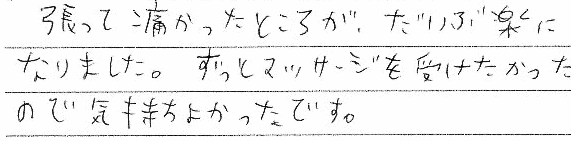 張って痛かったところが、だいぶ楽に
なりました。ずっとマッサージを受けたかった
ので気持ちよかったです。